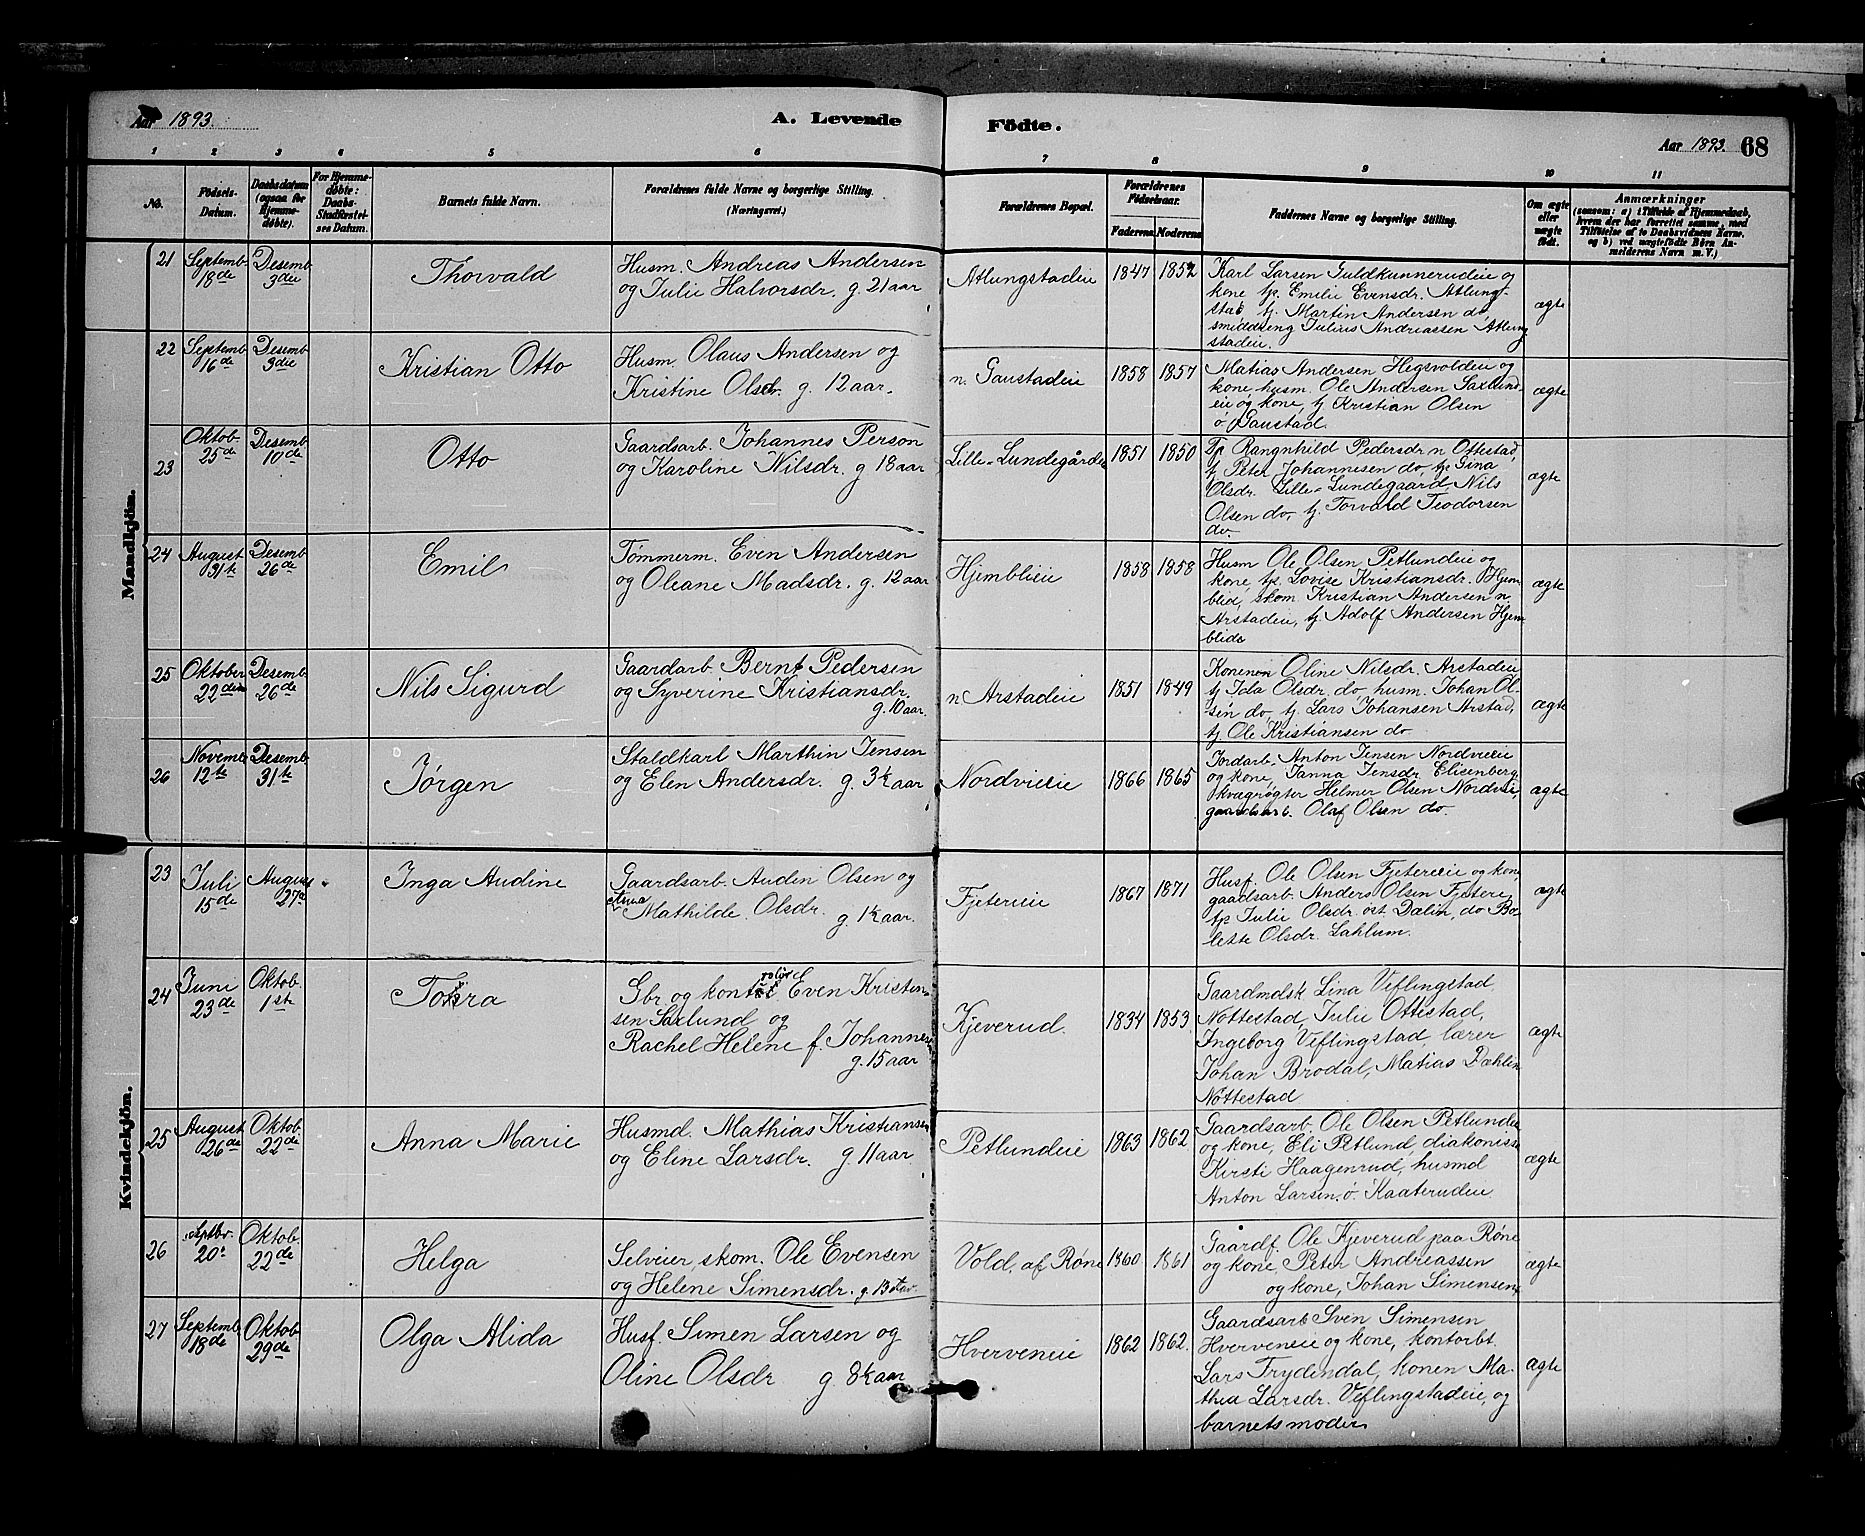 Aar 1893.
A. Levende Födte.
Aar 1893. 68
1 2 3 4 5 6 7 8 9 10 11
No.
Födsels-Datum.
Daabsdatum (ogsaa for Hjemmedöbte).
For Hjemmedøbte: Daabs-Stadfæstelses Datum.
Barnets fulde Navn.
Forældrenes fulde Navne og borgerlige Stilling. (Næringsvei.)
Forældrenes Bopæl.
Forældrenes Fødselsaar.
Faderens Moderens
Faddernes Navne og borgerlige Stilling.
Om ægte eller uægte født.
Anmærkninger
(saasom: a) i Tilfælde af Hjemmedaab, hvem der har forrettet samme, med Tilføielse af to Daabsvidners Navne, og b) ved uægtefødte Børn Anmelderens Navn m. V.)
Mandkjön.
21 Septemb 18de Desemb 3die
Thorvald
Husm. Andreas Andersen
og Julie Halvorsdr. g. 21 aar
Atlungstadeie 1847 1852
Karl Larsen Guldkunnerudeie og
kone tp. Emilie Evensdr. Atlung-
stad tj. Martin Andersen do
smeddreng Julius Andreassen Atlung
stadeie.
ægte
22 Septemb 16de Desemb 3die
Kristian Otto
Husm. Olaus Andersen og
Kristine Olsdr. g. 12 aar.
n. Gaustadeie 1858 1857
Matias Andersen Hegsvoldeie og
kone, husm. Ole Andersen Saxlund-
eie og kone, tj Kristian Olsen
ö Gaustad
ægte
23 Oktob. 25de Desemb 10de
Otto
Gaardsarb. Johannes Person
og Karoline Nilsdr. g 18 aar
Lille-Lundegårde 1851 1850
Tp Rangnhild Pedersdr n Ottestad,
tj Peter Johannesen do, tp Gina
Olsdr. Lille-Lundegaard, Nils
Olsen do, tj. Torvald Teodorsen
do.
ægte
24 August 31te Desemb 26de
Emil
Tømmerm. Even Andersen
og Oleane Madsdr. g. 12 aar
Hjemblieie 1858 1858
Husm Ole Olsen Petlundeie og
kone, tp. Lovise Kristiansdr. Hjem
blid, skom. Kristian Andersen n
Arstadeie, tj Adolf Andersen Hjem
blide
ægte
25 Oktober 22den Desemb 26de
Nils Sigurd
Gaardarb. Bernt Pedersen
og Syverine Kristiansdr.
g. 10 aar.
n Arstadeie 1851 1849
Konenen Oline Nilsdr. Arstadeie
tj Ida Olsdr do, husm. Johan Ol-
sen do, tj Lars Johansen Arstad,
tj Ole Kristiansen do
ægte
26 Novemb 12te Desemb 31te
Jørgen
Staldkarl Marthin Jensen
og Elen Andersdr. g. 3½ aar
Nordvieie 1866 1865
Jordarb. Anton Jensen Nordvieie
og kone, Janna Jensdr. Elisenberg
kvægrøgter Helmer Olsen Nordvie,
gaardsarb. Olaf Olsen do.
ægte
Kvindekjön.
23 Juli 15de August 27de
Inga Audine
Gaardsarb. Audin Olsen og
Anna
Mathilde Olsdr. g. 1½ aar.
Fjetereie 1867 1871
Husf. Ole Olsen Fjetereie og kone
gaadsarb. Anders Olsen Fjetere
tp Julie Olsdr. öst Dælin, do Bo-
lette Olsdr. Lahlum.
ægte
24 Juni 23de Oktob. 1ste
Tora
Gbr og kontrolör Even Kristen-
sen Saxlund og
Rachel Helene f. Johannesen
g. 15 aar
Kjeverud. 1834 1853
Gaardmdsk Lina Veflingstad
Nøttestad, Julie Ottestad,
Ingeborg Veflingstad lærer
Johan Brodal, Matias Dæhlin
Nøttestad
ægte
25 August 26de Oktob. 22de
Anna Marie
Husmd. Mathias Kristiansen
og Eline Larsdr. g. 11 aar
Petlundeie 1863 1862
Gaardsarb. Ole Olsen Petlundeie
og kone, Eli Petlund, diakonisse
Kirsti Haagenrud, husmd
Anton Larsen ö. Kaaterudeie.
ægte
26 Septbr. 20e Oktob. 22de
Helga
Selveier, skom. Ole Evensen
og Helene Simensdr. g. 13 aar.
Vold af Røne 1860 1861
Gaardf. Ole Kjeverud paa Røne
og kone, Peter Andreassen
og kone, Johan Simensen
ægte
27 Septemb 18de Oktob 29de
Olga Alida
Husf. Simen Larsen og
Oline Olsdr g. 8½ aar
Hverveneie 1862 1862.
Gaardsarb Sven Simensen
Hverveneie og kone, kontorbt.
Lars Frydendal, konen Ma-
thea Larsdr. Veflingstadeie, og
barnets moder
ægte